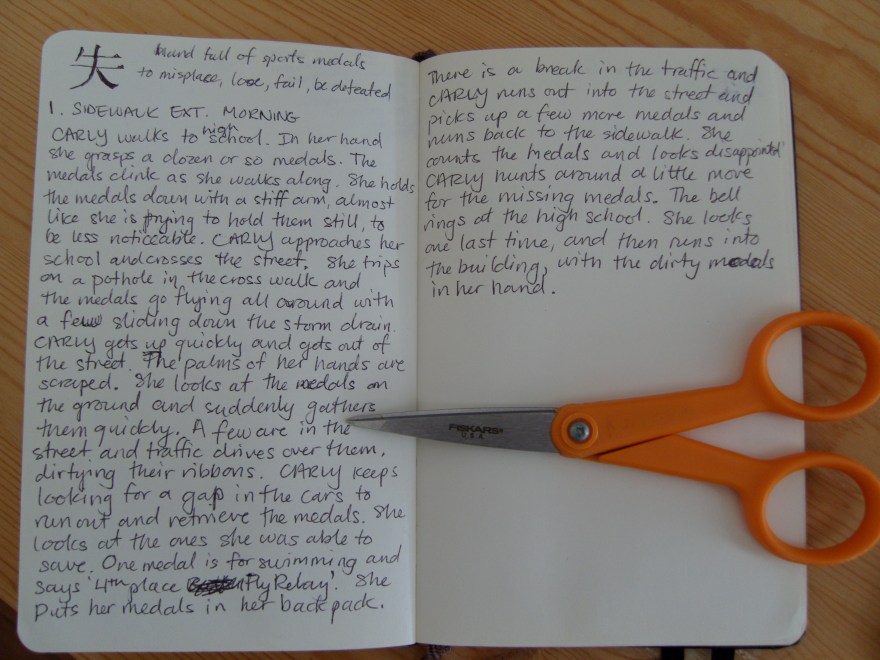 失
hand full of sports medals
to misplace, lose, fail, be defeated
1. SIDEWALK EXT. MORNING
CARLY walks to high school. In her hand
she grasps a dozen or so medals. The
medals clink as she walks along. She holds
the medals down with a stiff arm, almost
like she is trying to hold them still, to
be less noticeable. CARLY approaches her
school and crosses the street. She trips
on a pothole in the cross walk and
the medals go flying all around with
a few sliding down the storm drain.
CARLY gets up quickly and gets out of
the street. The palms of her hands are
scraped. She looks at the medals on
the ground and suddenly gathers
them quickly. A few are in the
street and traffic drives over them,
dirtying their ribbons. CARLY keeps
looking for a gap in the cars to
run out and retrieve the medals. She
looks at the ones she was able to
save. One medal is for swimming and
says '4th place Fly Relay'. She
puts her medals in her backpack.
There is a break in the traffic and
CARLY runs out into the street and
picks up a few more medals and
runs back to the sidewalk. She
counts the medals and looks disappointed
CARLY hunts around a little more
for the missing medals. The bell
rings at the high school. She looks
one last time, and then runs into
the building, with the dirty medals
in her hand.
FISKARS
U.S.A.